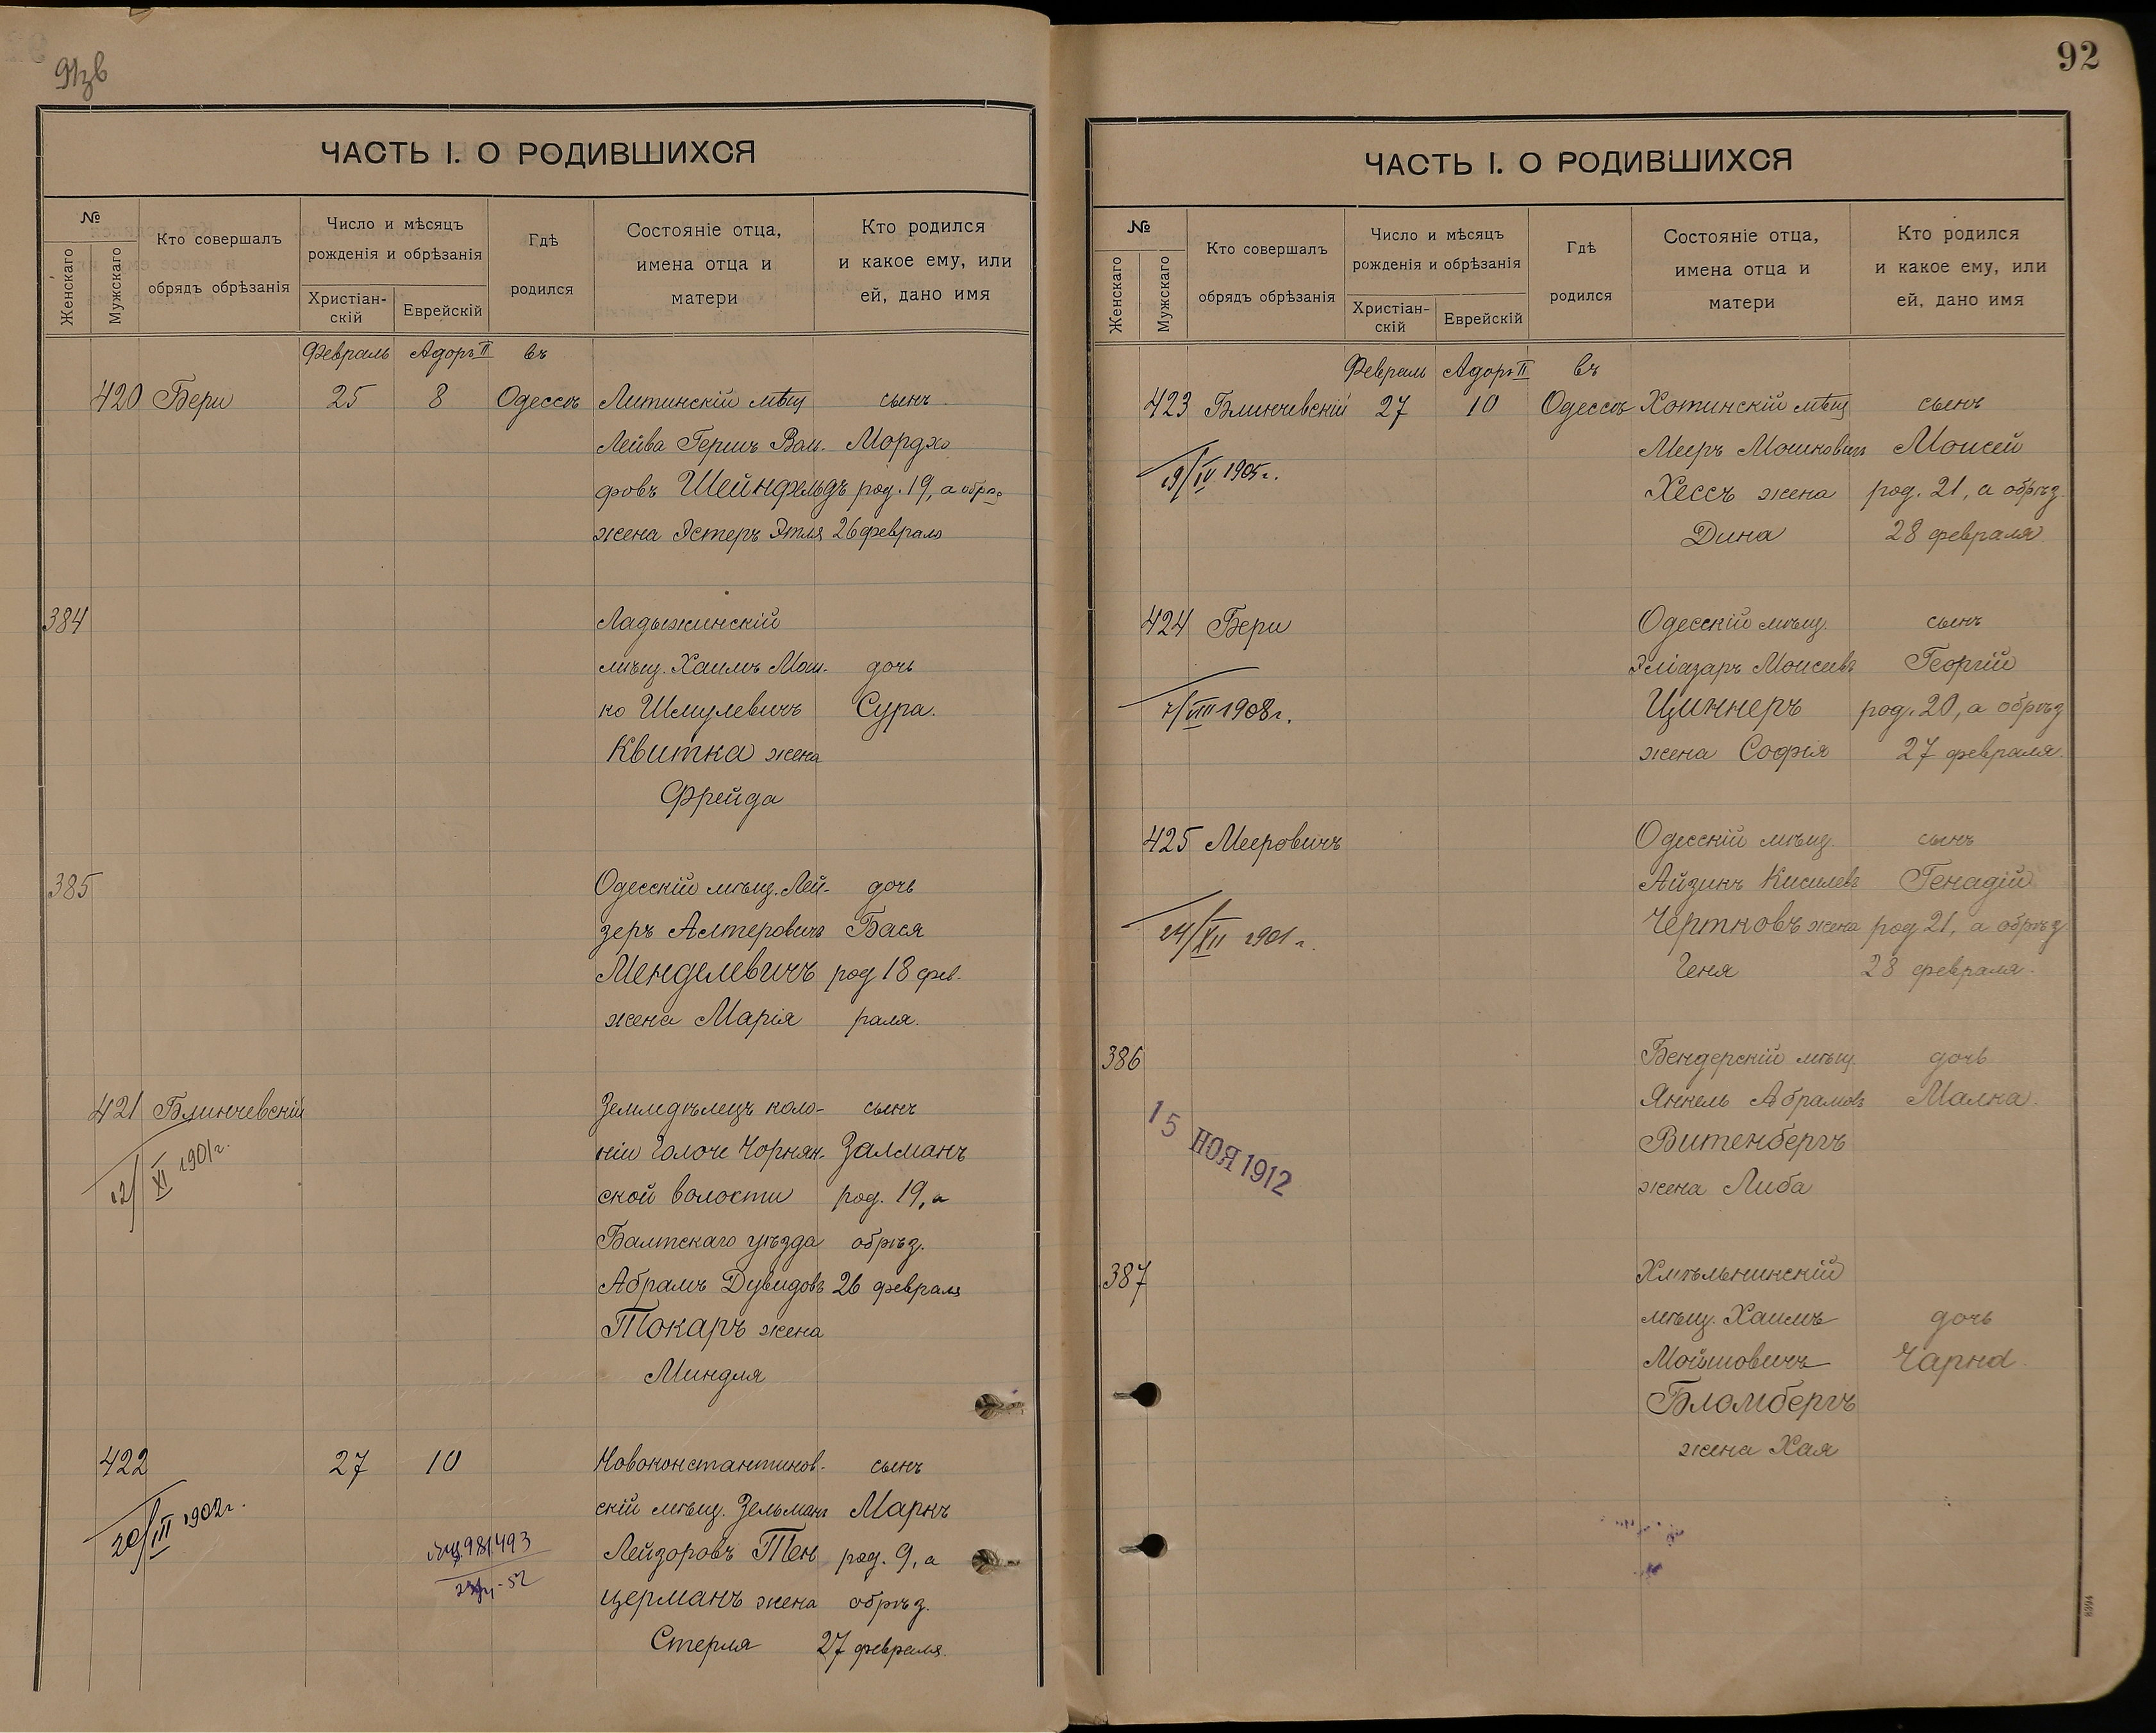 91зв
ЧАСТЬ I. О РОДИВШИХСЯ
№
Женскаго
Мужскаго
Кто совершалъ
обрядъ обрѣзанія
Число и мѣсяцъ
рожденія и обрѣзанія
Христіан-
скій
Еврейскій
Гдѣ
родился
Состояніе отца,
имена отца и
матери
Кто родился
и какое ему, или
ей, дано имя
Февраль Адоръ II въ
420 Бери 25 8 Одессѣ Литинскій мѣщ сынъ
Лейва Гершъ Вол. Мордхо
фовъ Шейнфельдъ род. 19, а обрѣз
жена Эстеръ Этля 26 февраля
384 Ладыжинскій
мѣщ. Хаимъ Мош- дочь
ко Шмулевичъ Сура.
Квитка жена
Фрейда
385 Одесскій мѣщ. Лей- дочь
зеръ Алтеровичъ Бася
Менделевичъ род 18 фев-
жена Марія раля.
421 Блинчевскій Земледѣлецъ коло- сынъ
ніи Голоче Чорнян- Залманъ
12/XI 1901г.
ской волости род. 19, а
Балтскаго уѣзда обрѣз.
Абрамъ Дувидовъ 26 февраля
Токаръ жена
Миндля
422 27 10 Новоконстантинов- сынъ
скій мѣщ. Зельманъ Маркъ
20/III 1902г.
981493
Лейзоровъ Тен род. 9, а
церманъ жена обрѣз.
Стерля 27 февраля.
92
ЧАСТЬ I. О РОДИВШИХСЯ
№
Женскаго
Мужскаго
Кто совершалъ
обрядъ обрѣзанія
Число и мѣсяцъ
рожденія и обрѣзанія
Христіан-
скій
Еврейскій
Гдѣ
родился
Состояніе отца,
имена отца и
матери
Кто родился
и какое ему, или
ей, дано имя
Февраль Адоръ II въ
423 Блинчевскій 27 10 Одессѣ Хотинскій мѣщ сынъ
Мееръ Мошковичъ Моисей
19/IV 1905г.
Хессъ жена род. 21, а обрѣз.
Дина 28 февраля
424 Бери Одесскій мѣщ. сынъ
Эліазаръ Моисеевъ Георгій
7/VIII 1908г.
Циннеръ род. 20, а обрѣз
жена Софія 27 февраля.
425 Мееровичъ Одесскій мѣщ. сынъ
Айзикъ Кисилевъ Генадій
24/XII 1901 г.
Чертковъ жена род 21, а обрѣз
Геня 28 февраля.
386 Бендерскій мѣщ. дочь
Янкель Абрамовъ Малка.
15 НОЯ 1912
Витенбергъ
жена Либа
387 Хмѣльнинскій
мѣщ. Хаимъ дочь
Мойшовичъ Чарна.
Бломбергъ
жена Хая